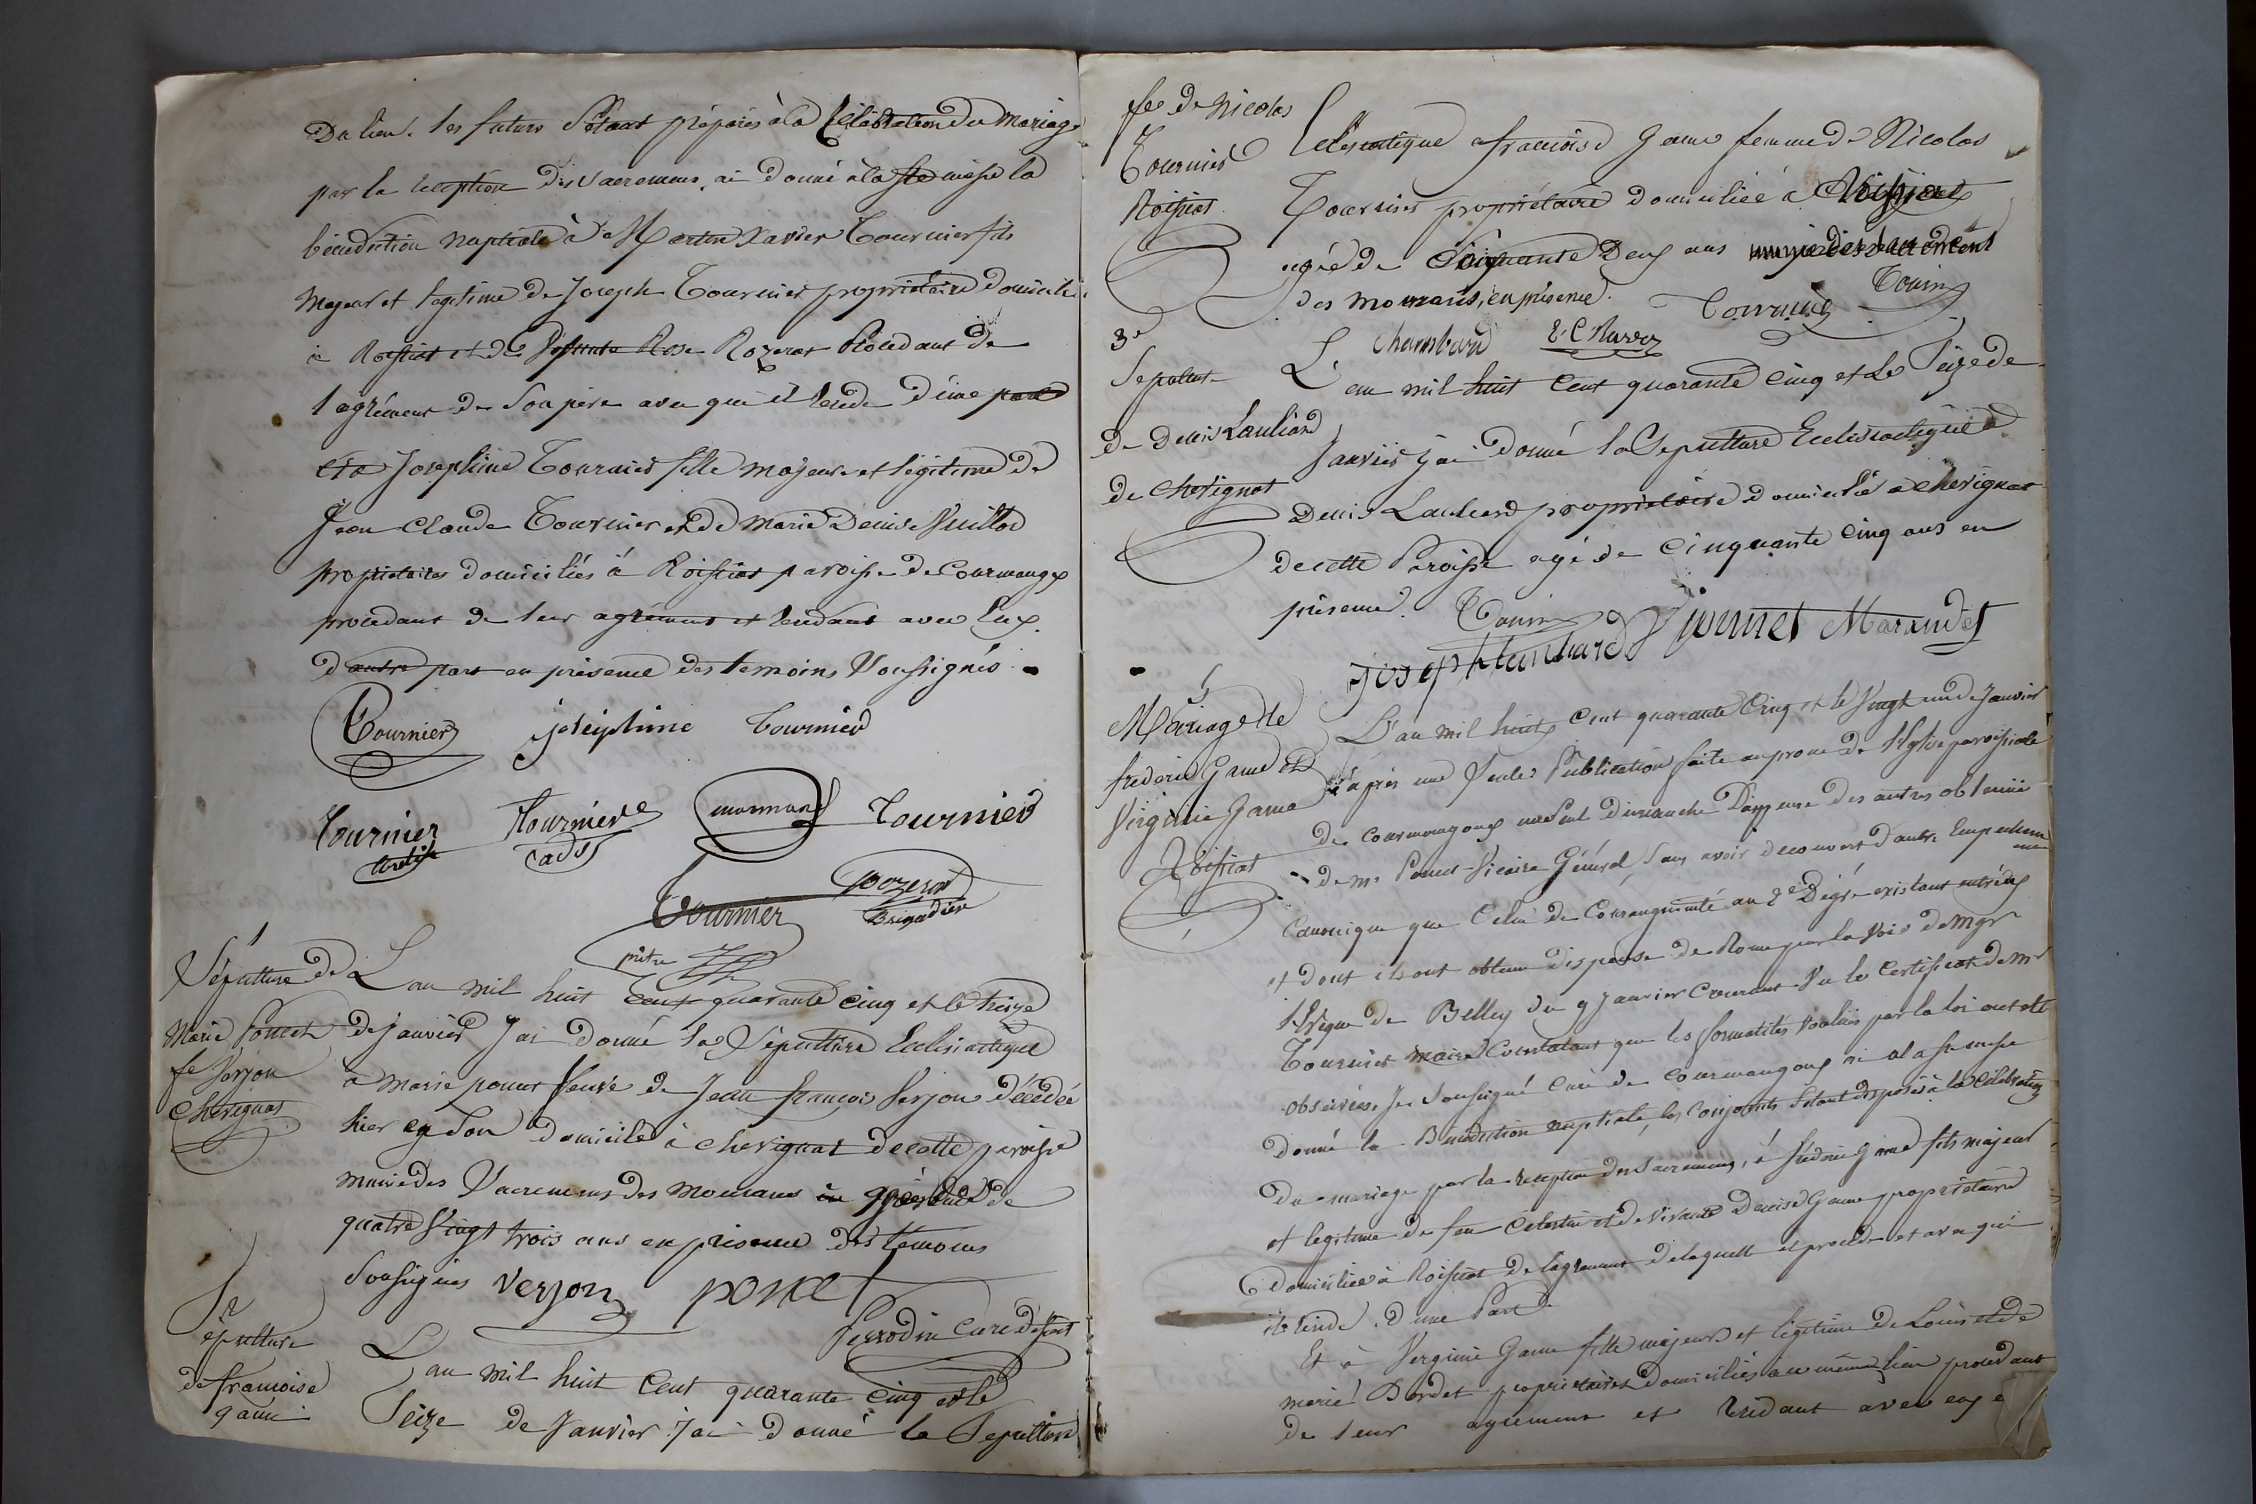 Du lieu. les futurs s'étant préparés à la Célébration du mariage
par la reception des sacremens, ai donné à la ste messe la
bénédiction nuptiale à Martin Xavier Tournier fils
majeur et légitime de Joseph Tournier propriétaire domicilié
à Roissiat et de defunte Rose Rozerot Procedant de
l'agrément de son père avec qui il reside d'une part
et à Josephine Tournier fille majeure et légitime de
Jean Claude Tournier et de marie Denise Vuillod
propriétaires domiciliés à Roissiat paroisse de Courmangoux
procedant de leur agrément et residant avec Eux
d'autre part en présence des temoins soussignés.
Tournier joséphine tournier
tournier tournier
cadet marmand Tournier
Tournier Rozerot
prêtre Brigadier
1
Sépulture de
Marie Poncet
fe Verjon
Chevignat
L'an mil huit cent quarante cinq et le treize
de janvier J'ai donné la Sépulture Eccliastique
à marie poncet veuve de Jean françois Verjon décédée
hier en son domicile à chevignat de cette paroisse
munie des Sacremens des mourans agée de
quatre vingt trois ans en présence des temoins
soussignés Verjon poncet
Perrodin Curé desst
Sepulture
de francoise
game
L'an mil huit Cent quarante cinq et le
Seize de Janvier j'ai donné la Sepulture
fe de Nicolas
Tournier
Roissiat
Eclesiastique a francoise Game femme de Nicolas
Tournier propriétaire domiciliée à Roissiat
agée de Soixante Deux ans munie des sacrement
des mourans, en présence.
Chambard E. Chavoz Tournier Tonin
3e
Sepulture
de Denis Lauliard
de chevignat
L'an mil huit Cent quarante Cinq et le Seize de
Janvier j'ai donné la Sepulture Ecclesiastique à
Denis Lauliard propriétaire domicilié à chevignat
de cette Paroisse agé de Cinquante Cinq ans en
présence. Tonin
joseph Vionnet Marandet
Mariage de
frederic Game et
Virginie Game
Roissiat
L'an mil huit Cent quarante Cinq et le Vingt un de Janvier
après une Seule Publication faite au prone de l'Eglise paroissiale
de Courmangoux un seul Dimanche Dispense des autres obtenüe
de mr Poncet Vicaire Général, Sans avoir decouvert d'autre Empechement
Canonique que Celui de Consanguinité au 2e Dégré existant entr'eux
et dont ils ont obtenu dispense de Rome par la Voie de Mgr
l'Evêque de Belley du 9 Janvier Courant Vu le Certificat de mr
Tournier maire Constatant que les formalités voulües par la loi ont été
observées. Je Soussigné Curé de Courmangoux ai à la ste messe
donné la Bénédiction nuptiale, les conjoints s'étant disposés à la célébration
du mariage par la reception des sacremens, à frédéric Game fils majeur
et legitime de feu Celestin et de vivante Denise Game propriétaire
domiciliée à Roissiat de l'agrement de laquelle il procede et avec qui
il reside d'une Part
Et à Virginie Game fille majeure et légitime de Louis et de
marie Bordet propriétaires domiciliés au même lieu procedant
de leur agrement et residant avec eux